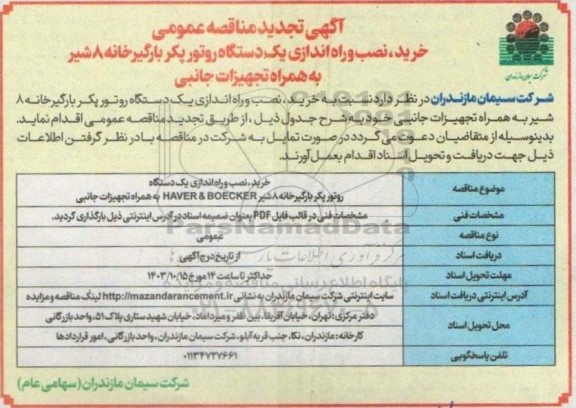 آگهی تجدید مناقصه عمومی
خرید، نصب و راه اندازی یک دستگاه روتور پکر بارگیرخانه ۸ شیر
به همراه تجهیزات جانبی
شرکت سیمان مازندران
شرکت سیمان مازندران در نظر دارد نسبت به خرید، نصب و راه اندازی یک دستگاه روتور پکر بارگیرخانه ۸
شیر به همراه تجهیزات جانبی خود به شرح جدول ذیل، از طریق تجدید مناقصه عمومی اقدام نماید.
بدینوسیله از متقاضیان دعوت می گردد در صورت تمایل به شرکت در مناقصه با در نظر گرفتن اطلاعات
ذیل جهت دریافت و تحویل اسناد اقدام بعمل آورند.
موضوع مناقصه
خرید، نصب و راه اندازی یک دستگاه
روتور پکر بارگیرخانه ۸ شیر HAVER & BOECKER به همراه تجهیزات جانبی
مشخصات فنی
مشخصات فنی در قالب فایل PDF بعنوان ضمیمه اسناد در آدرس اینترنتی ذیل بارگذاری گردید.
نوع مناقصه
عمومی
دریافت اسناد
از تاریخ درج آگهی
مهلت تحویل اسناد
حداکثر تا ساعت ۱۴ مورخ ۱۴۰۳/۱۰/۱۵
آدرس اینترنتی دریافت اسناد
سایت اینترنتی شرکت سیمان مازندران به نشانی http://mazandarancement.ir لینک مناقصه و مزایده
محل تحویل اسناد
دفتر مرکزی: تهران، خیابان آفریقا، بین ظفر و میرداماد، خیابان شهید ستاری پلاک ۵۱، واحد بازرگانی
کارخانه: مازندران، نکا، جنب قریه آبلو، شرکت سیمان مازندران، واحد بازرگانی، امور قراردادها
تلفن پاسخگویی
۰۱۱۳۴۷۲۷۶۶۱
شرکت سیمان مازندران (سهامی عام)
ParsNamadData